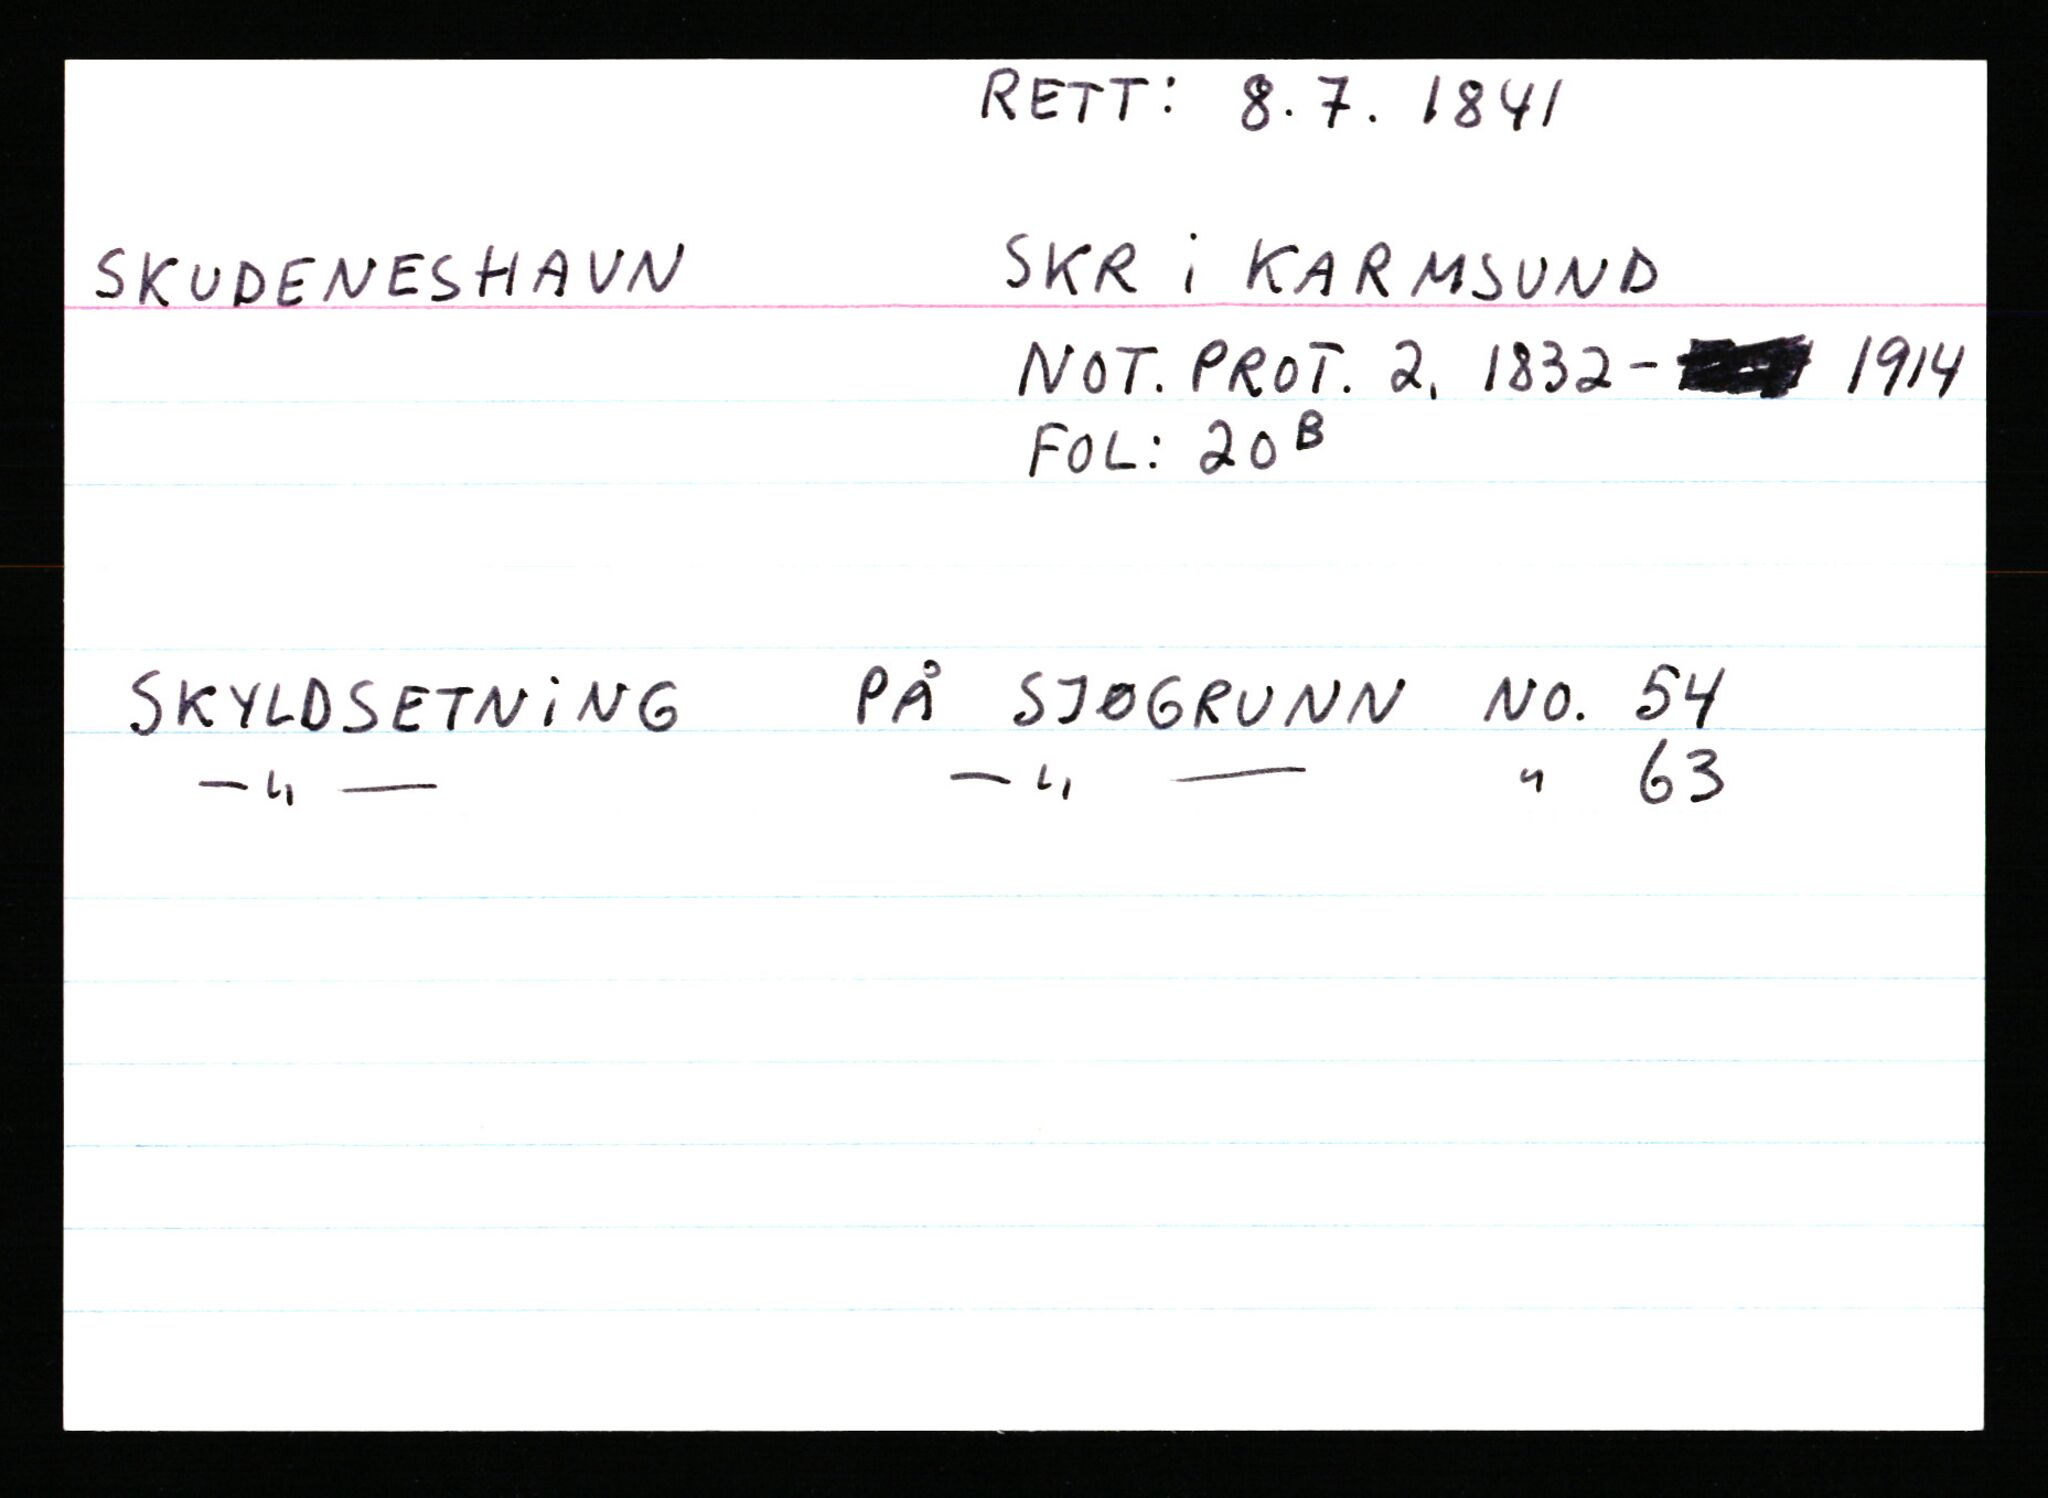 RETT: 8.7. 1841
SKUDENESHAVN SKR i KARMSUND
NOT. PROT. 2, 1832- 1914
FOL: 20 B
SKYLDSETNiNG PÅ SJØGRUNN NO. 54
— " — — " — " 63